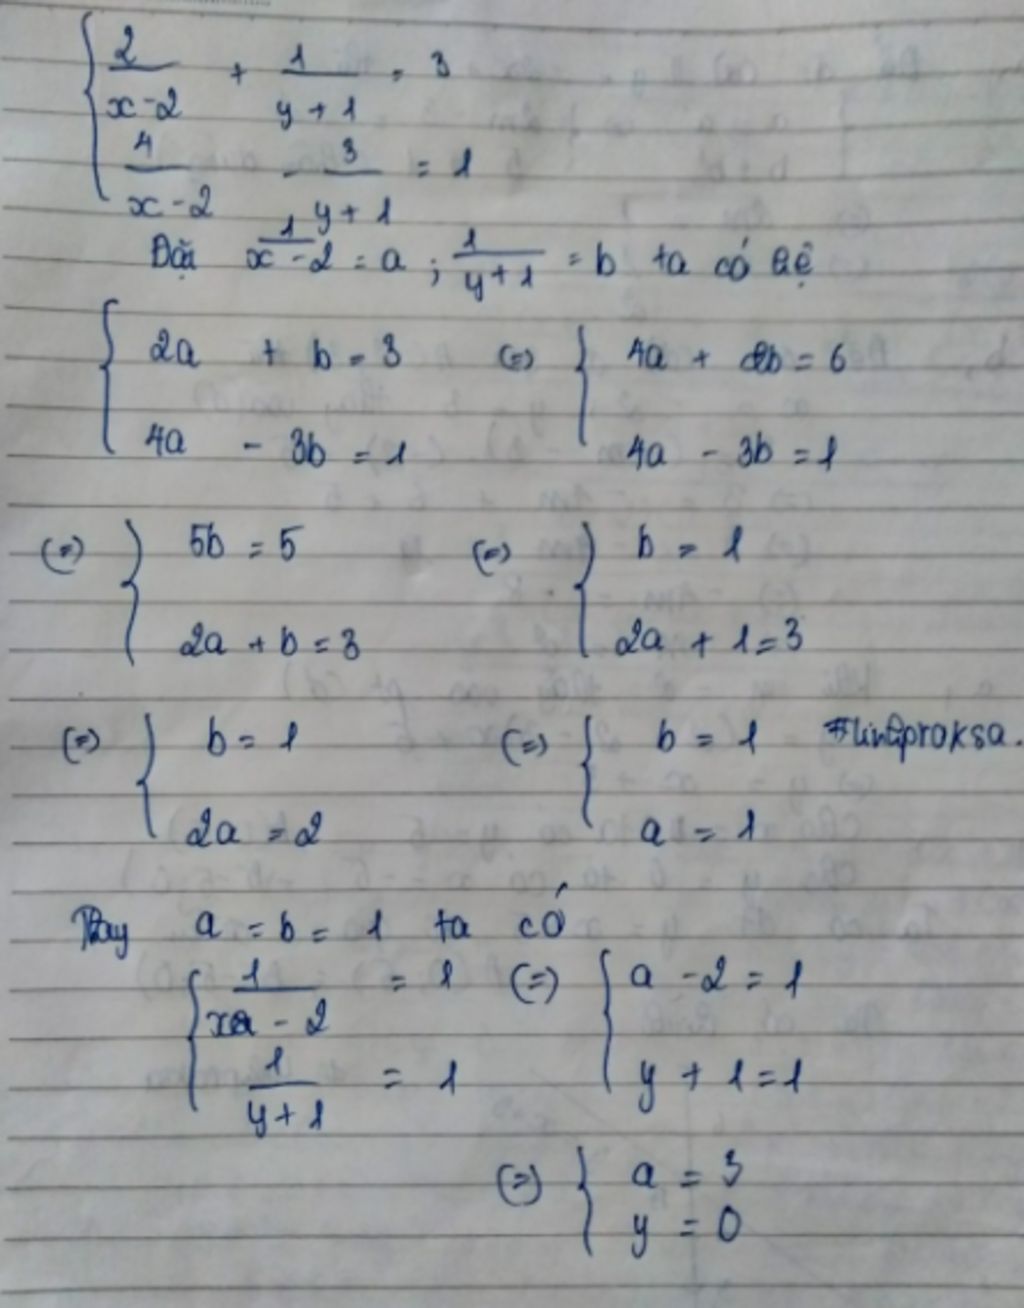 { 2/(x-2) + 1/(y+1) = 3
4/(x-2) - 3/(y+1) = 1
Đặt 1/(x-2) = a ; 1/(y+1) = b ta có hệ
{ 2a + b = 3 (=) { 4a + 2b = 6
4a - 3b = 1 4a - 3b = 1
(=) { 5b = 5 (=) { b = 1
2a + b = 3 2a + 1 = 3
(=) { b = 1 (=) { b = 1 #linhproksa.
2a = 2 a = 1
Thay a = b = 1 ta có
{ 1/(x-2) = 1 (=) { a - 2 = 1
1/(y+1) = 1 y + 1 = 1
(=) { a = 3
y = 0